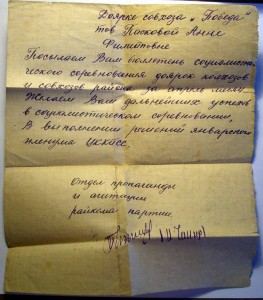 Доярке совхоза „Победа"
тов Пасковой Анне
Филиповне
Посылаем Вам бюллетень социалисти-
ческого соревнования доярок колхозов
и совхозов района за апрель месяц
Желаем Вам дальнейших успехов
в социалистическом соревновании,
в выполнении решений январского
пленума ЦК КПСС.
Отдел пропаганды
и агитации
райкома партии.